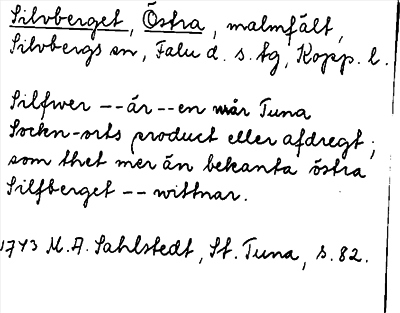 Silvberget, Östra, malmfält,
Silvbergs sn, Falu d. s. tg, Kopp. l.
Silfwer -- är -- en wår Tuna
Sockn-orts product eller afdregt;
som thet mer än bekanta östra
Silfberget -- wittnar.
1743 M. A. Sahlstedt, St. Tuna, s. 82.